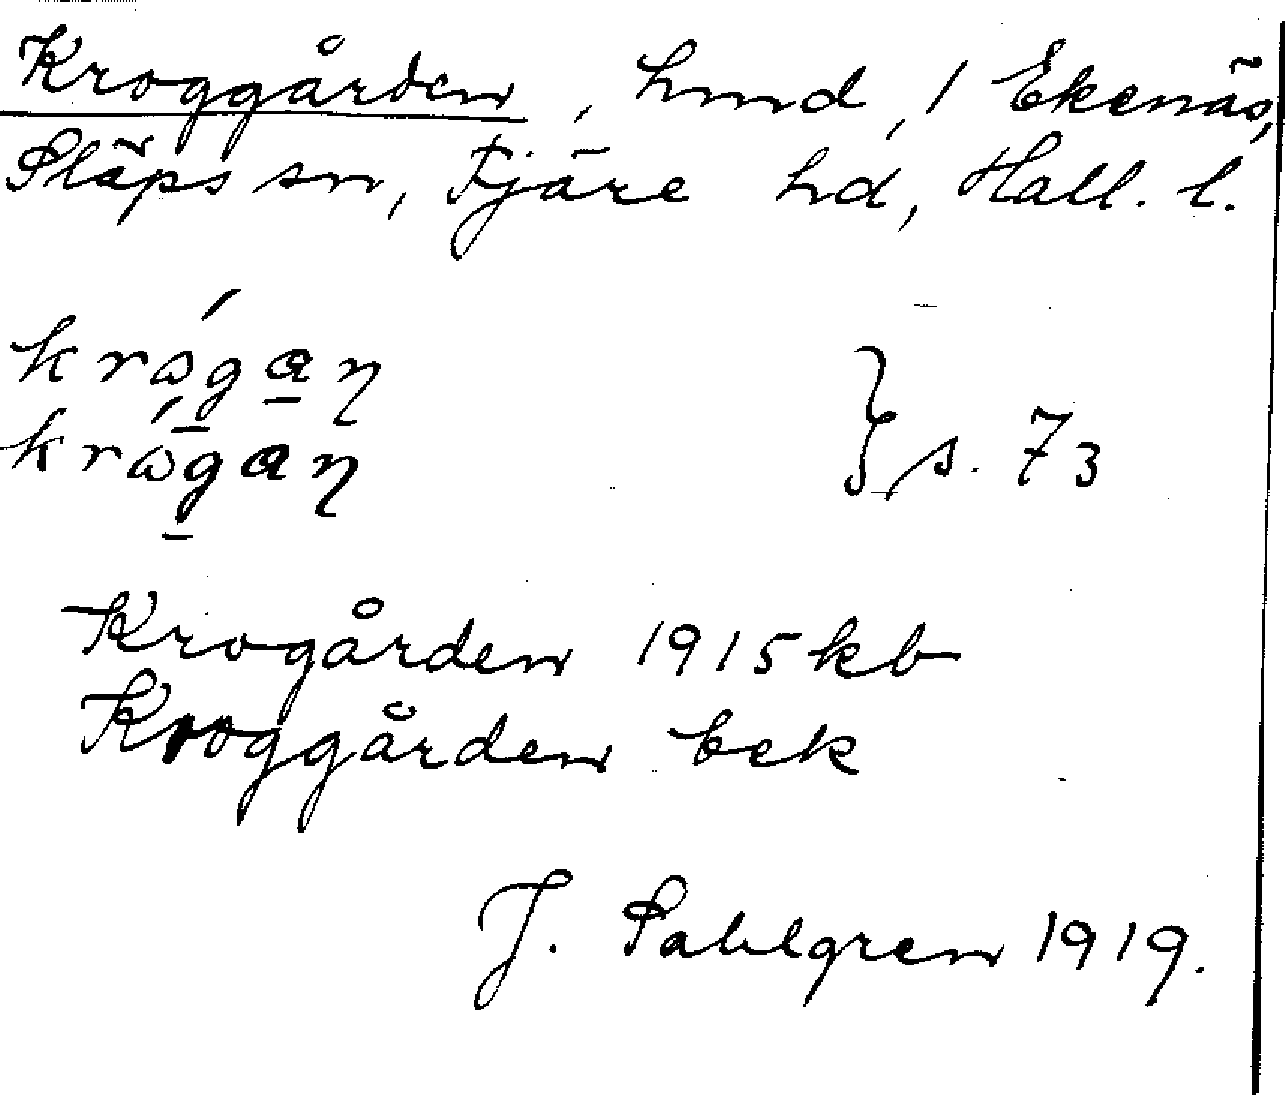 Kroggården, hmd, 1 Ekenäs,
Släps sn, Fjäre hd, Hall. l.
krógan
krógan } s. 73
Krogården 1915 kb
Kroggården bek
J. Sahlgren 1919.